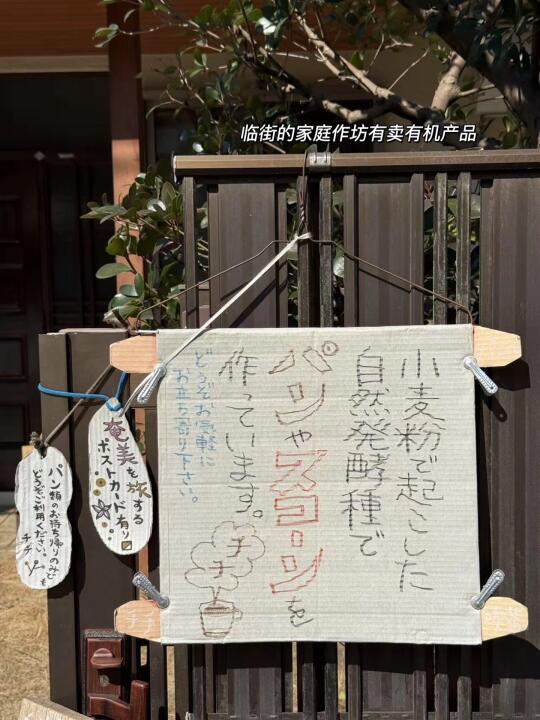 临街的家庭作坊有卖有机产品
小麦粉で起こした
自然発酵種で
パンやスコーンを
作っています。
どうぞお気軽に
お立ち寄り下さい。
チチ
奄美を旅する
ポストカード有り
パン類のお持ち帰りのみで
どうぞご利用ください。
チチ